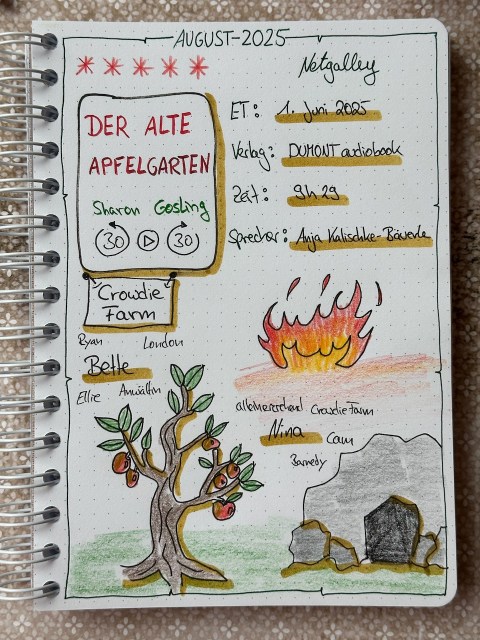 AUGUST-2025
Netgalley
DER ALTE
APFELGARTEN
Sharon Gosling
30 30
ET: 1. Juni 2025
Verlag: DUMONT audiobook
Zeit: 9h 29
Sprecher: Anja Kalischke-Bäuerle
Crowdie
Farm
Ryan London
Bette
Ellie Anwältin
alleinerziehend Crowdie Farm
Nina Cam
Barnedy